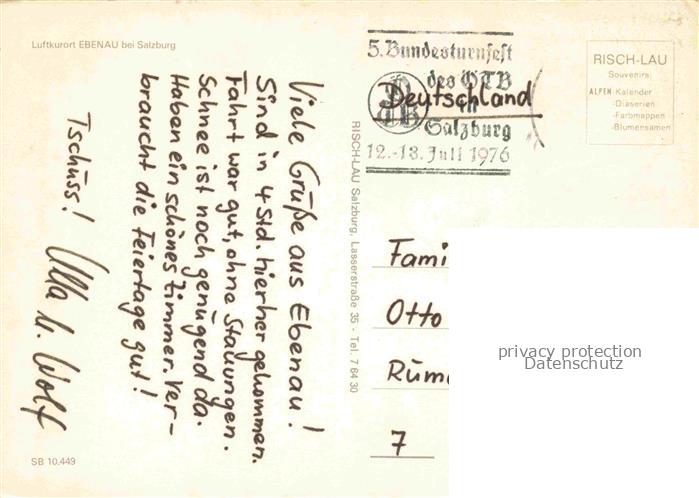 Luftkurort EBENAU bei Salzburg
Viele Grüße aus Ebenau!
Sind in 4 Std. hierher gekommen.
Fahrt war gut, ohne Stauungen.
Schnee ist noch genügend da.
Haben ein schönes Zimmer. Ver-
braucht die Feiertage gut!
Tschüss! Ulla u. Wolf
SB 10.449
RISCH-LAU Salzburg, Lasserstraße 35 - Tel. 7 64 30
5. Bundesturnfest
des ÖTB
in
Salzburg
12.-18. Juli 1976
Deutschland
RISCH-LAU
Souvenirs
ALPEN-Kalender
-Diaserien
-Farbmappen
-Blumensamen
Fami
Otto
Rüm
7
privacy protection
Datenschutz